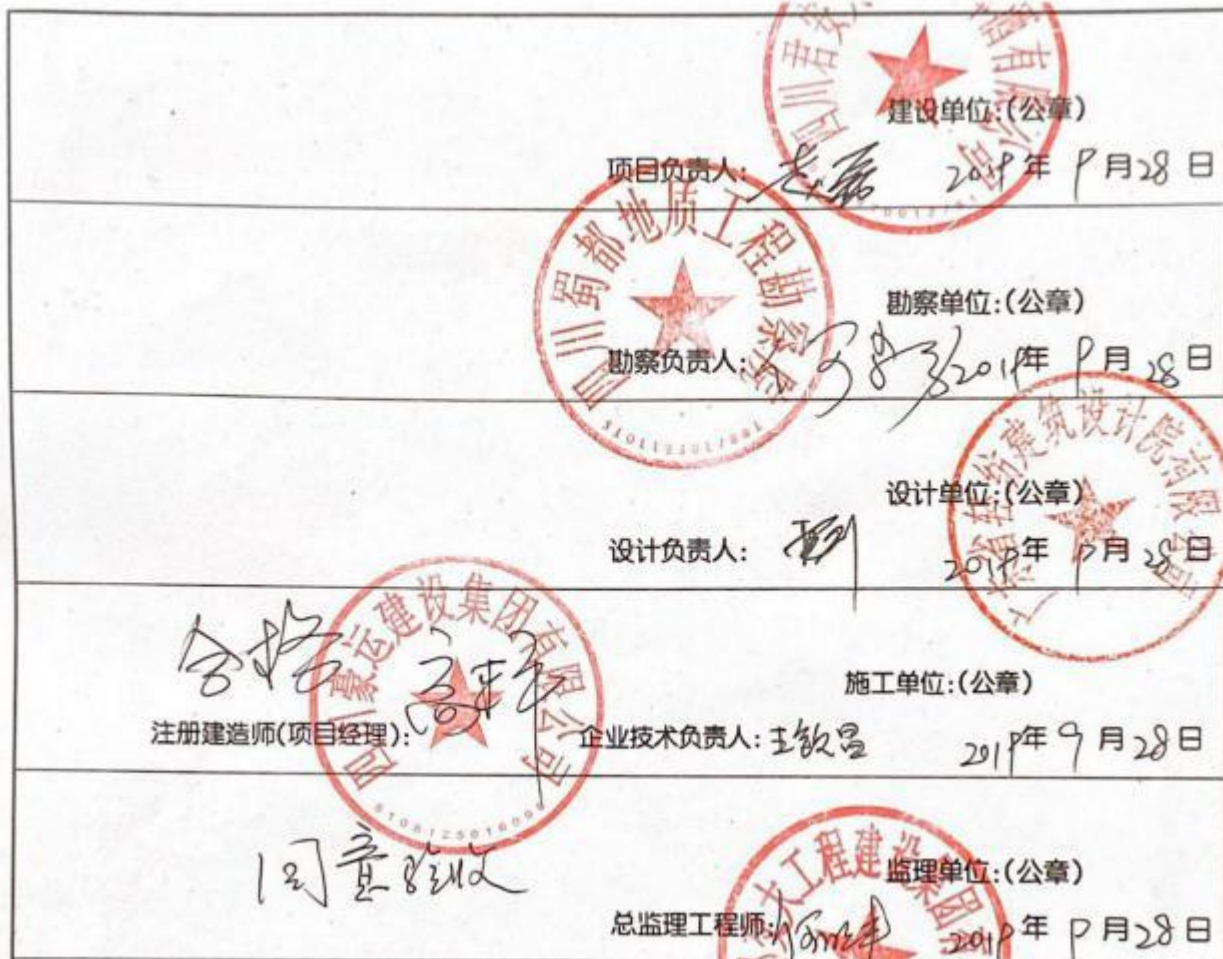 建设单位:(公章)
项目负责人: 2019年 9月28日
四川蜀都地质工程勘察院
勘察单位:(公章)
勘察负责人: 2019年 9月28日
建筑设计院有限公司
设计单位:(公章)
设计负责人: 2019年 9月28日
合格
四川豪运建设集团有限公司
施工单位:(公章)
注册建造师(项目经理): 企业技术负责人:王钦昌 2019年 9月28日
同意验收
大工程建设集团有
监理单位:(公章)
总监理工程师: 2019年 9月28日